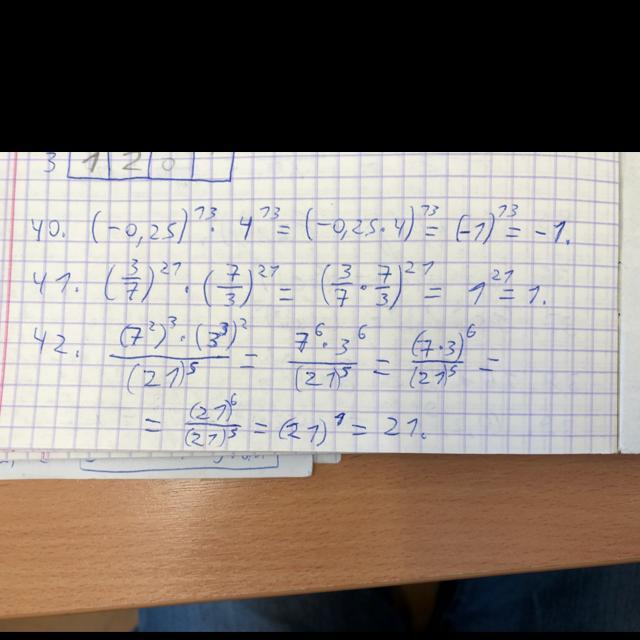 3 1 2 0
40. (-0,25)^13 · 4^13 = (-0,25·4)^13 = (-1)^13 = -1.
41. (3/7)^21 · (7/3)^21 = (3/7 · 7/3)^21 = 1^21 = 1.
42. ((7^2)^3 · (3^3)^2)/(21)^5 = (7^6 · 3^6)/(21)^5 = (7·3)^6/(21)^5 =
= (21)^6/(21)^5 = (21)^1 = 21.